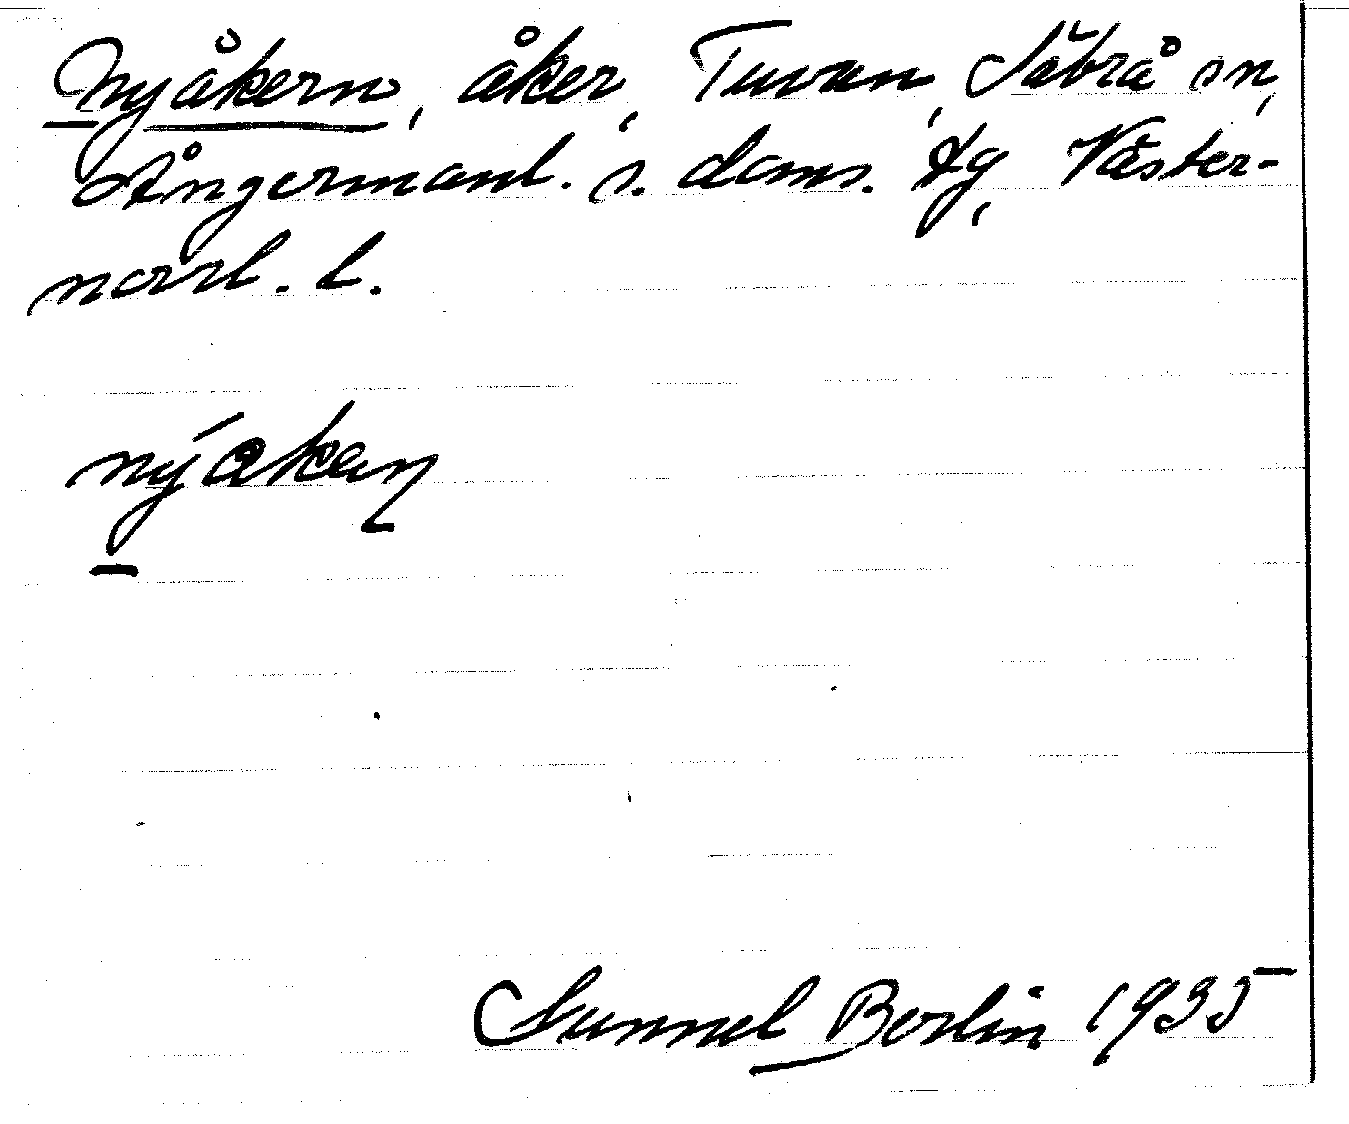 Nyåkern, åker, Tuvan, Säbrå sn,
Ångermanl. s. doms. tg, Väster-
norrl. l.
nýakaŋ
Gunnel Berlin 1935